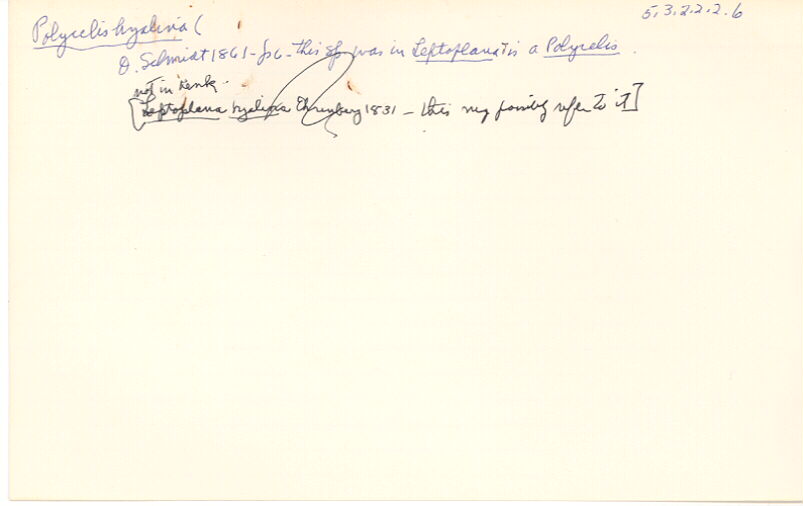 5.3.2.2.2.6
Polycelis hyalina (
O. Schmidt 1861 - p6 - this sp. was in Leptoplana & is a Polycelis.
not in Kenk.
[Leptoplana hyalina Ehrenberg 1831 - this may possibly refer to it]